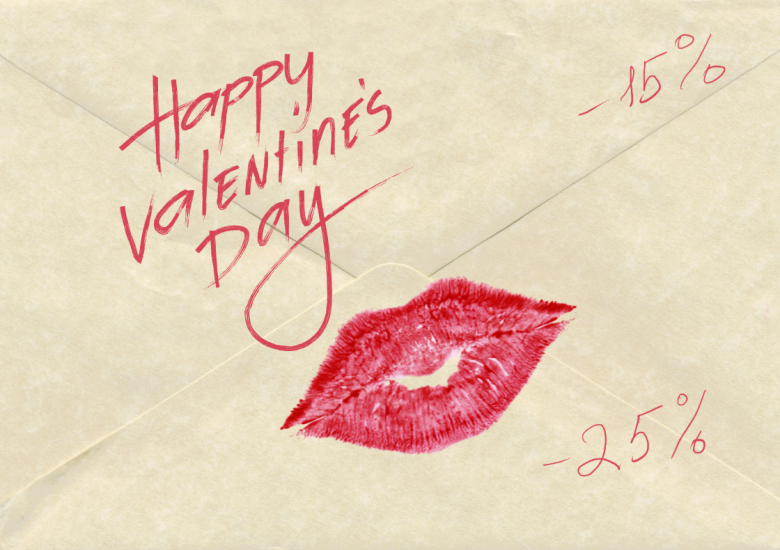 Happy
Valentine's
Day
-15%
-25%